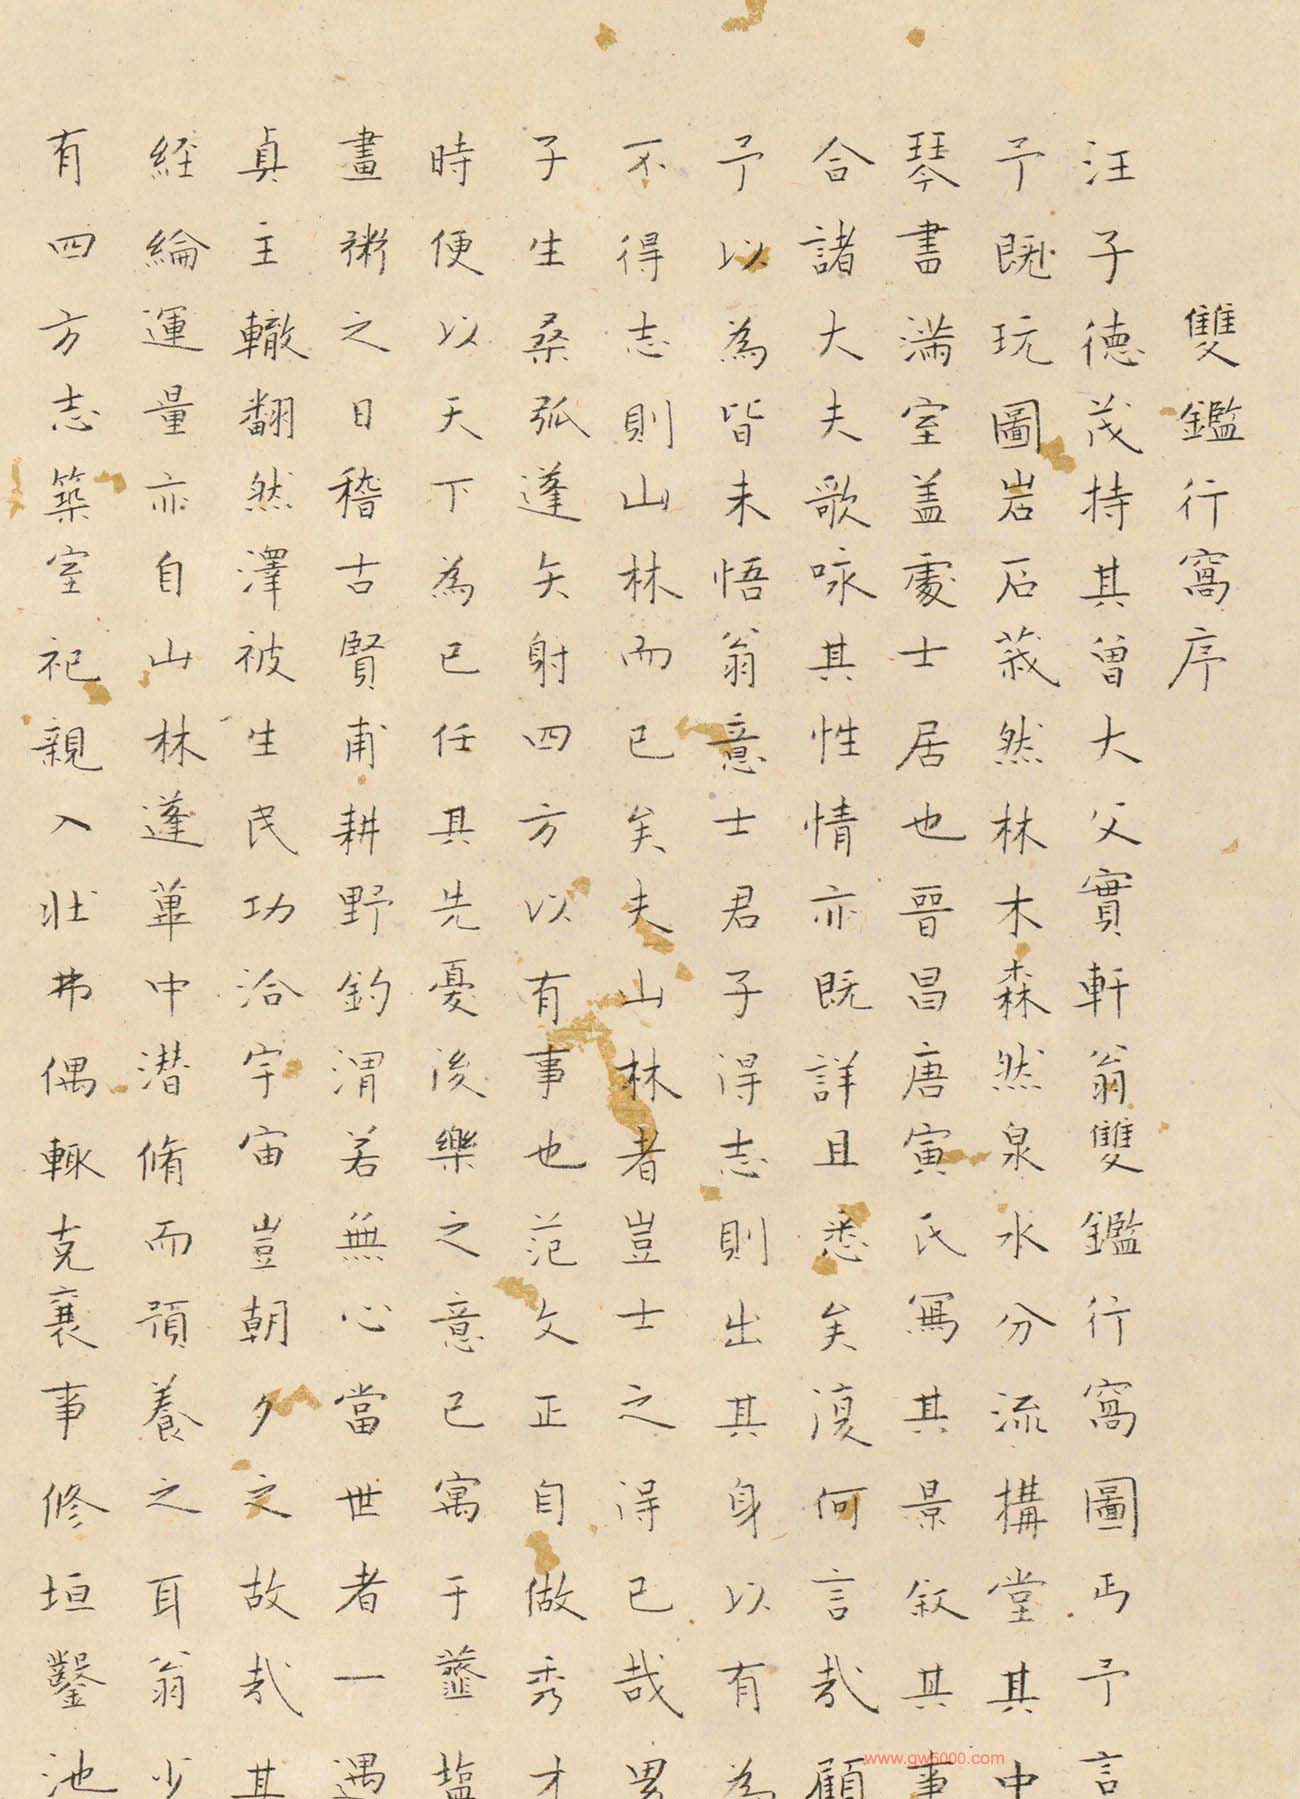 雙鑑行窩序
汪子德茂持其曾大父實軒翁雙鑑行窩圖丐予言
予既玩圖岩石莪然林木森然泉水分流構堂其中
琴書滿室盖處士居也晉昌唐寅氏寫其景叙其事
合諸大夫歌咏其性情亦既詳且悉矣復何言哉顧
予以為皆未悟翁意士君子得志則出其身以有為
不得志則山林而已矣夫山林者豈士之得已哉男
子生桑弧蓬矢射四方以有事也范文正自做秀才
時便以天下為已任其先憂後樂之意已寓于虀塩
畫粥之日稽古賢甫耕野釣渭若無心當世者一遇
真主轍翻然澤被生民功洽宇宙豈朝夕之故哉其
経綸運量亦自山林蓬蓽中潜脩而預養之耳翁少
有四方志築室祀親入壯弗偶輙克襄事修垣鑿池
www.gw5000.com